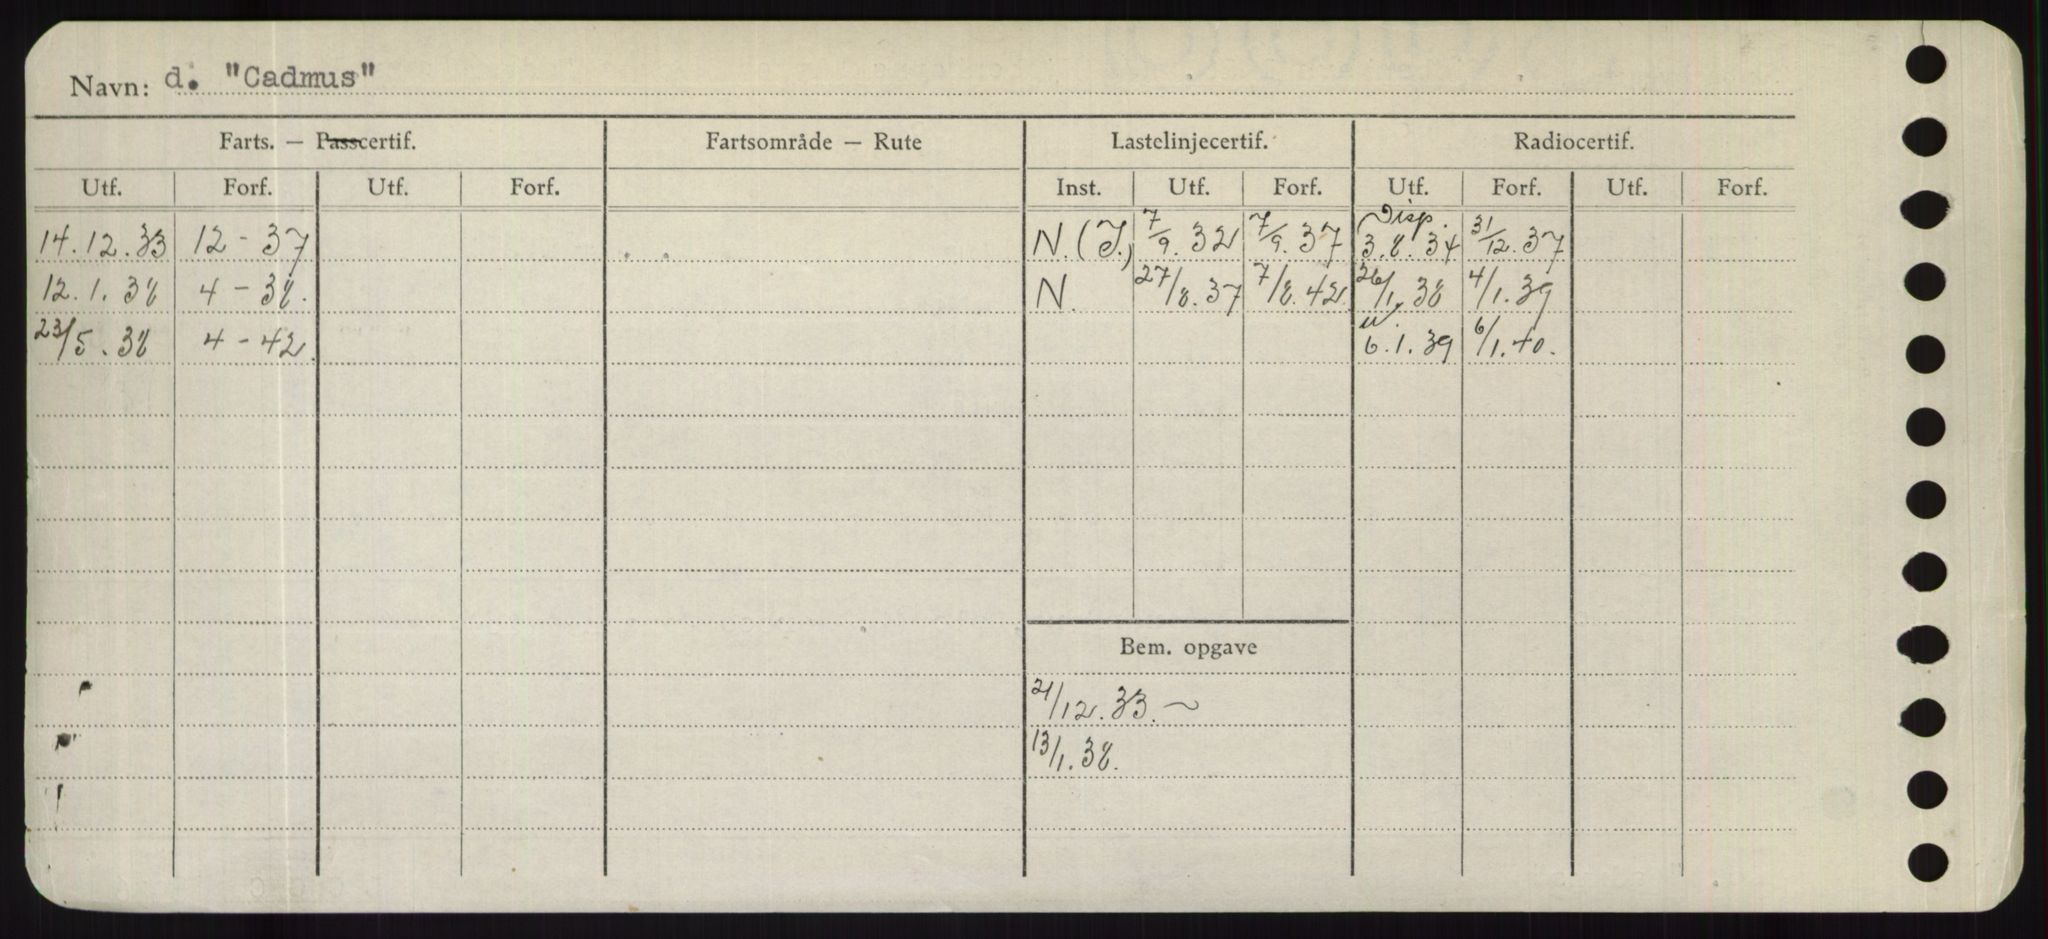 Navn: d. "Cadmus"
Farts. — Passcertif. Fartsområde — Rute Lastelinjecertif. Radiocertif.
Utf. Forf. Utf. Forf. Inst. Utf. Forf. Utf. Forf. Utf. Forf.
Disp.
14.12.33 12-37 N.(I.) 7/9.32 7/9.37 3.8.34 31/12.37
12.1.38 4-38. N. 27/8.37 7/8.42 26/1.38 4/1.39
23/5.38 4-42 6.1.39 6/1.40.
Bem. opgave
21/12.33. ~
13/1.38.